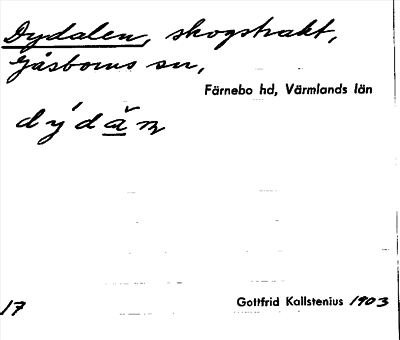 Dydalen, skogstrakt,
Gåsborns sn,
Färnebo hd, Värmlands län
dýdǎn
17
Gottfrid Kallstenius 1903